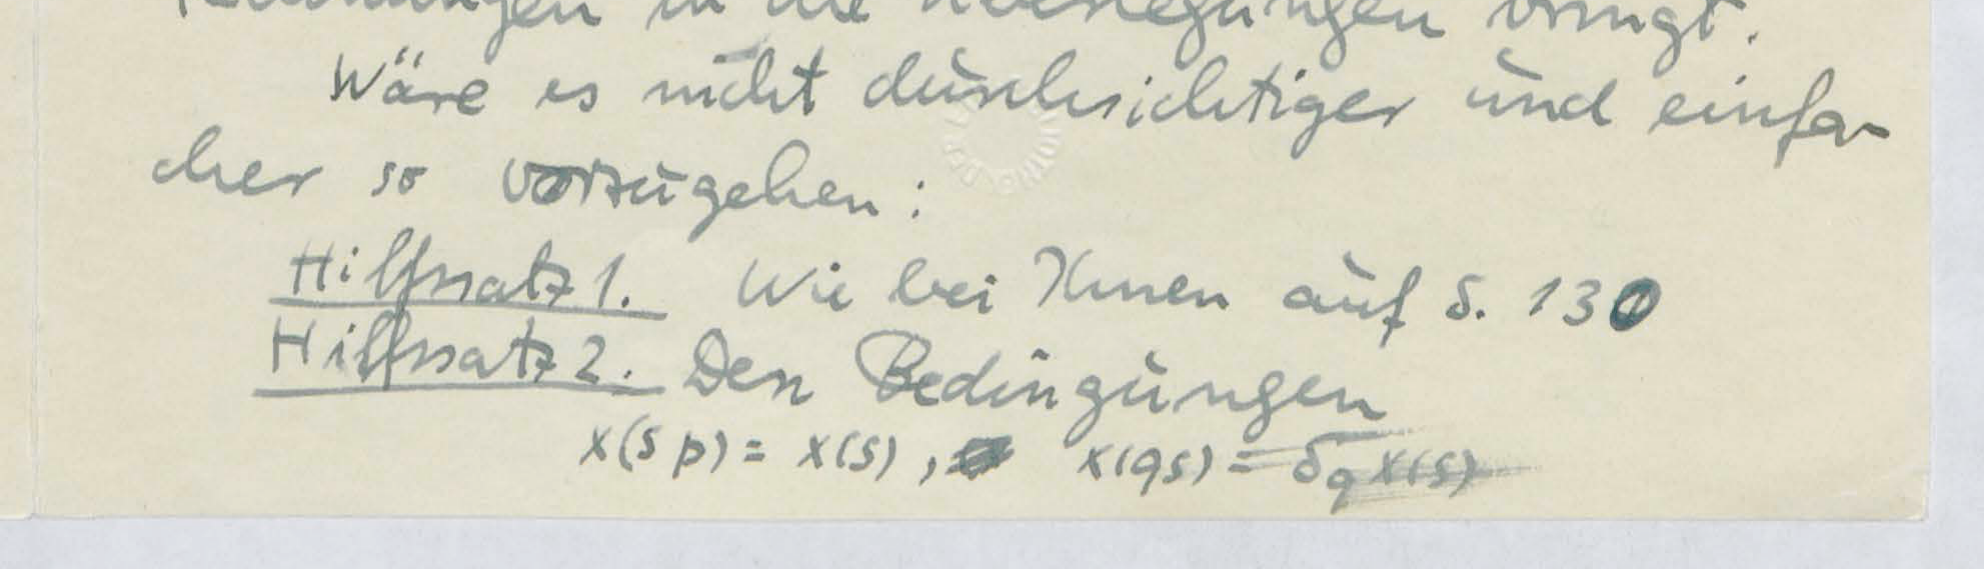 in die Überlegungen bringt.
Wäre es nicht durchsichtiger und einfa-
cher so vorzugehen:
Hilfssatz 1. Wie bei Ihnen auf S. 130
Hilfssatz 2. Den Bedingungen
x(sp) = x(s), x(qs) = δ_q x(s)